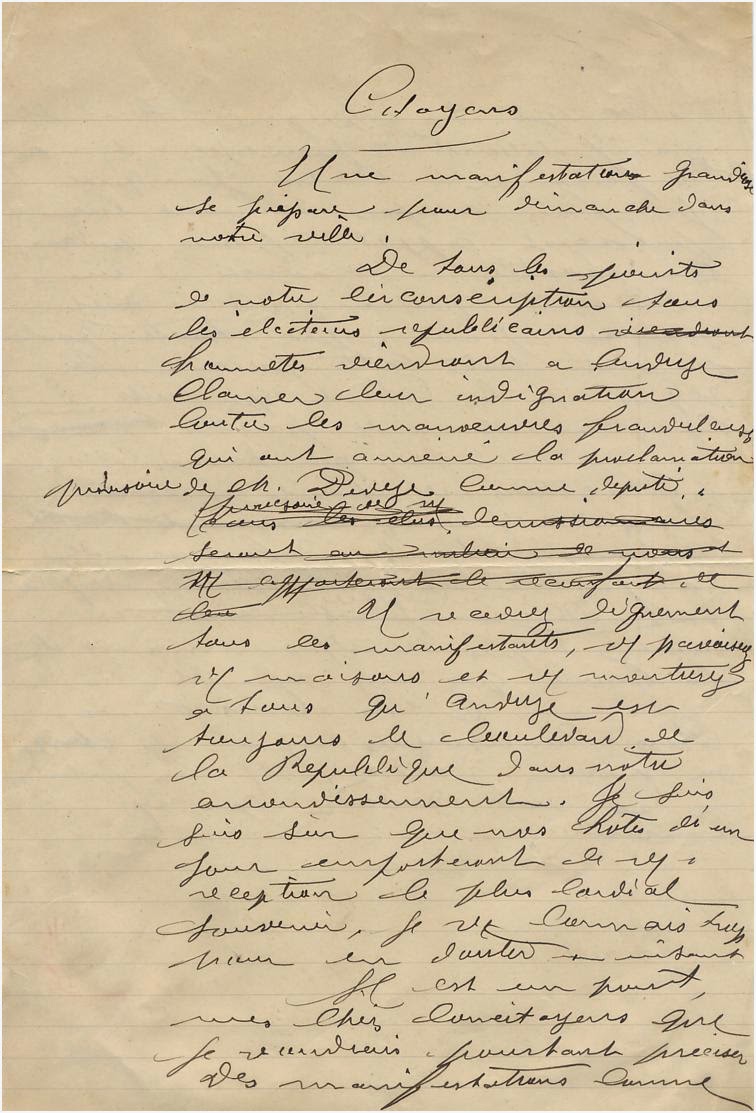 Citoyens
Une manifestation grandiose
se prépare pour dimanche dans
notre ville.
De tous les points
de notre circonscription tous
les électeurs républicains viendront
honnêtes viendront a Anduze
clamer leur indignation
contre les manoeuvres frauduleuses
qui ont amené la proclamation
provisoire de M. Devèze comme député.
tous les élus démissionnaires
seront au milieu de nous et
apporteront le réconfort de
leu
V recevrez dignement
tous les manifestants, v pavoiserez
vx maisons et v montrerez
a tous qu'Anduze est
toujours le boulevard de
la République dans notre
arrondissement. Je suis
suis sûr que nos hôtes d'un
jour emporteront de v
réception le plus cordial
souvenir, je vs connais trop
pour en douter un instant
Il est un point,
mes chers concitoyens que
je voudrais pourtant préciser
Des manifestations comme